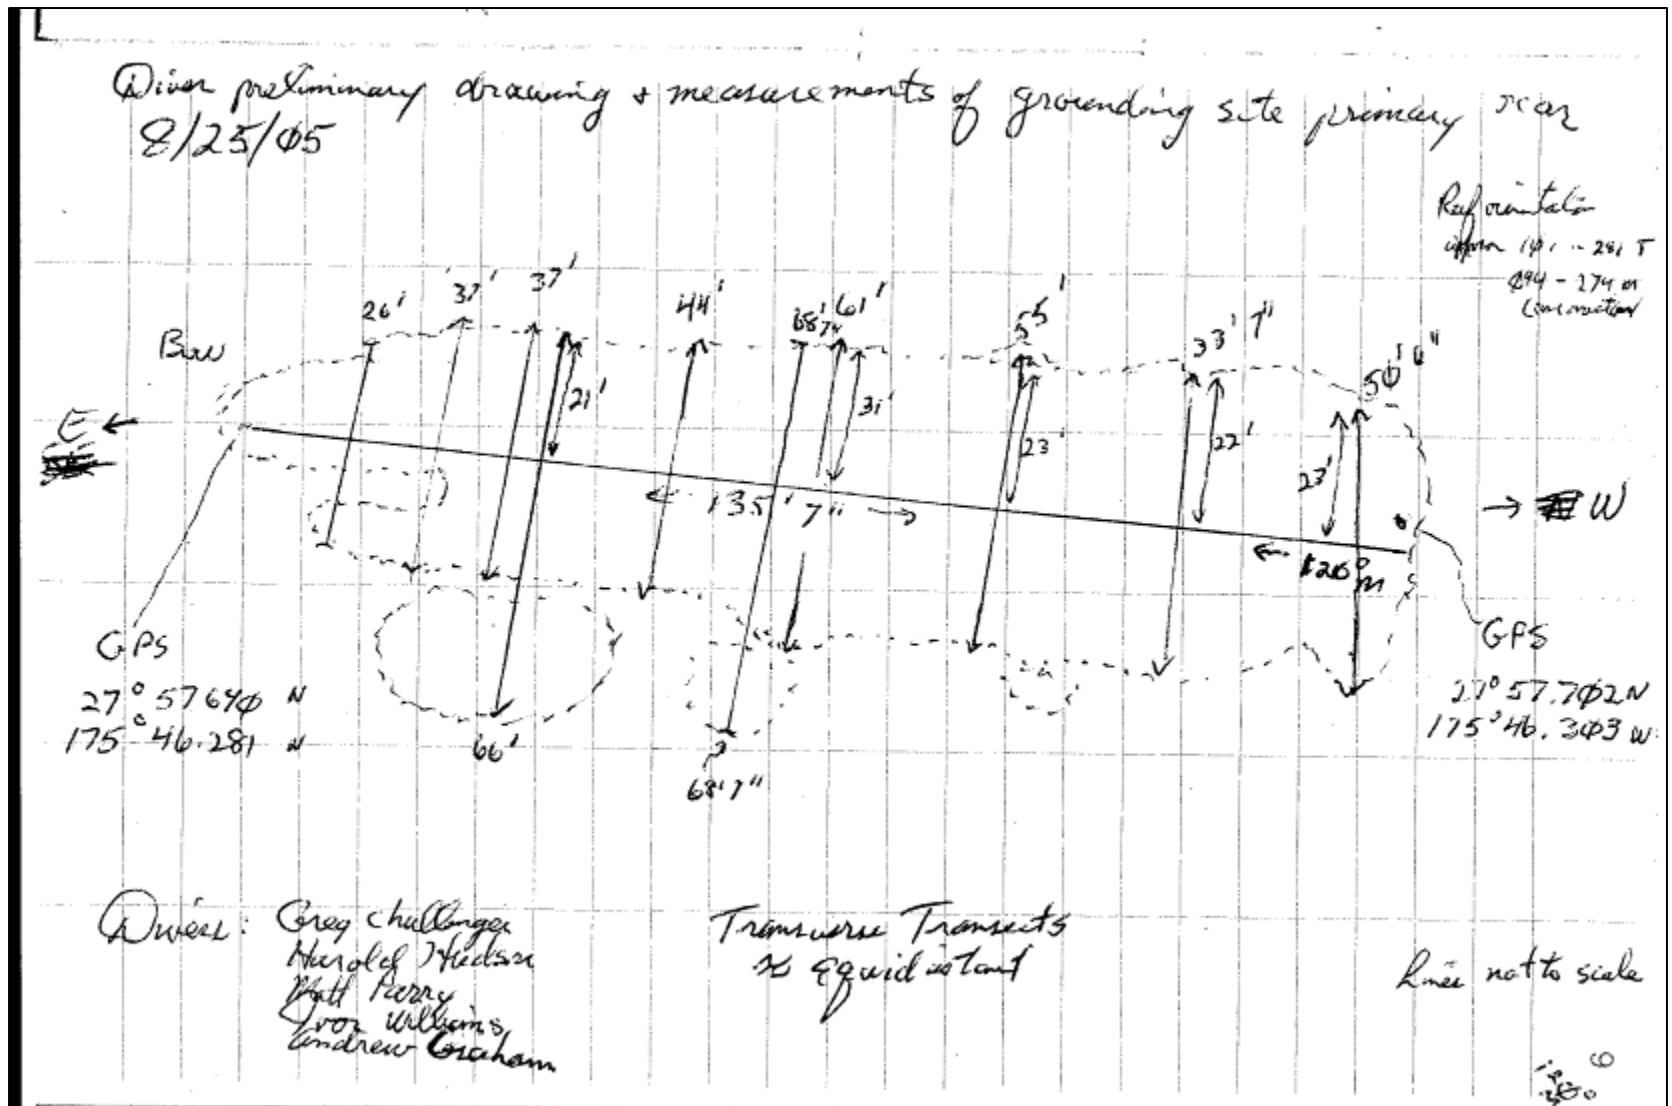 Diver preliminary drawing + measurements of grounding site primary scar
8/25/05
Reef orientation
281 T
094 - 274 m
Bow
26'
37'
37'
44'
68' 7"
61'
55'
33' 7"
50' 6"
21'
31'
23'
22'
23'
E ←
← 135' 7" →
→ W
← 120° m
66'
68' 7"
GPS
27° 57640 N
175° 46.281 W
GPS
27° 57.702 N
175° 46.303 W
Divers: Greg Challenger
Harold Hudson
Matt Parry
Ivor Williams
Andrew Graham
Transverse Transects
≈ equidistant
Lines not to scale